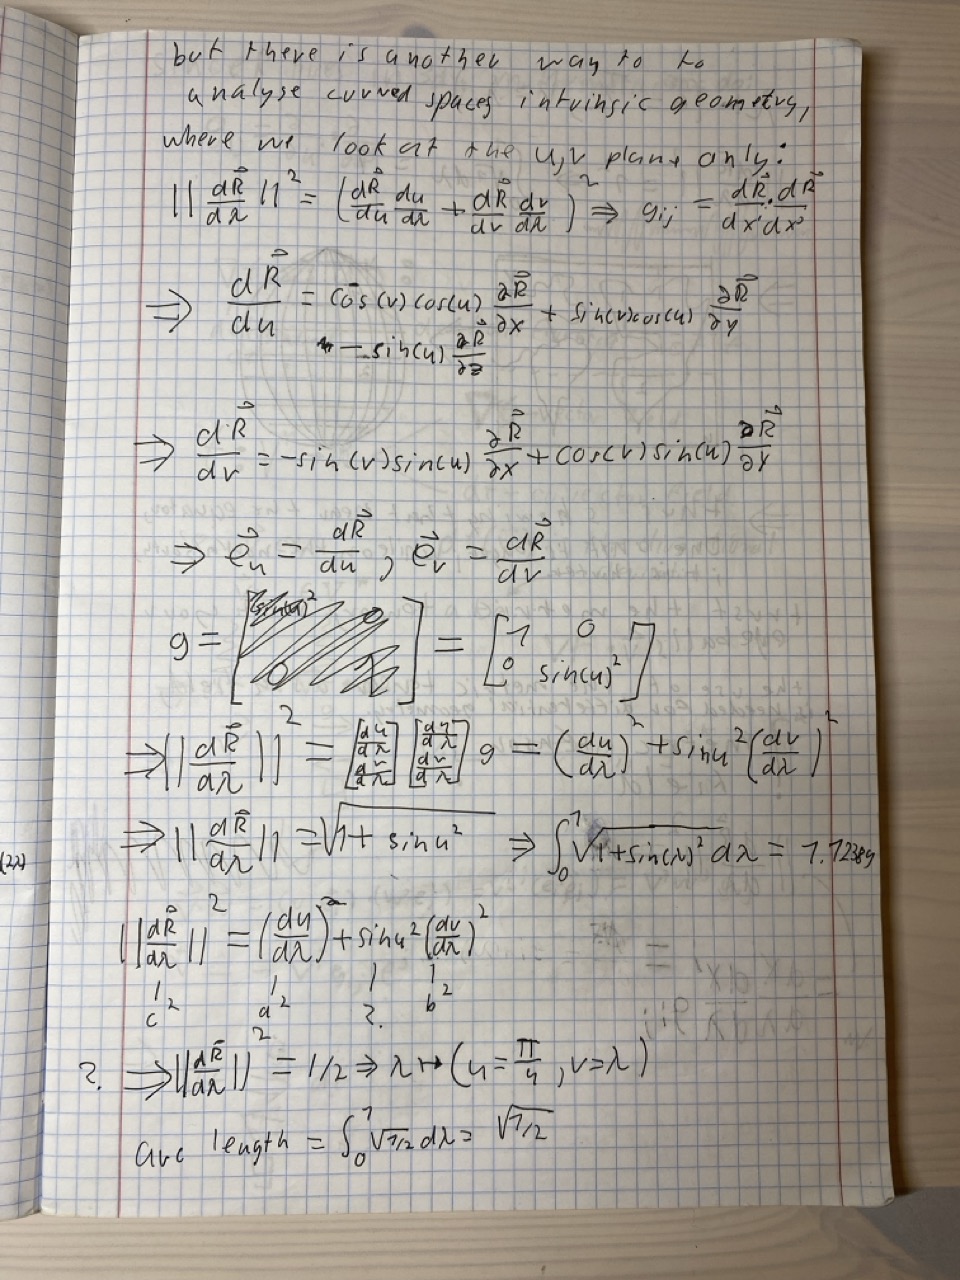 but there is another way to to
analyse curved spaces intrinsic geometry,
where we look at the u,v plane only:
||dR⃗/dλ||² = (dR⃗/du du/dλ + dR⃗/dv dv/dλ)² ⇒ gij = dR⃗/dxⁱ · dR⃗/dxʲ
⇒ dR⃗/du = cos(v)cos(u) ∂R⃗/∂x + sin(v)cos(u) ∂R⃗/∂y
− sin(u) ∂R⃗/∂z
⇒ dR⃗/dv = -sin(v)sin(u) ∂R⃗/∂x + cos(v)sin(u) ∂R⃗/∂y
⇒ e⃗u = dR⃗/du, e⃗v = dR⃗/dv
g = [ ] = [1 0 0 sin(u)²]
⇒ ||dR⃗/dλ||² = [du/dλ dv/dλ] [du/dλ dv/dλ] g = (du/dλ)² + sinu² (dv/dλ)²
⇒ ||dR⃗/dλ|| = √1 + sinu² ⇒ ∫₀¹ √1+sin(λ)² dλ = 1.12384
(2λ)
||dR⃗/dλ||² = (du/dλ)² + sinu² (dv/dλ)²
c² a² ? b²
? ⇒ ||dR⃗/dλ||² = 1/2 ⇒ λ ↦ (u = π/4, v = λ)
arc length = ∫₀¹ √1/2 dλ = √1/2